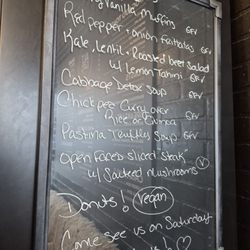 Vanilla Muffins
Red pepper + onion frittatas GFV
Kale, Lentil + Roasted beet Salad
w/ Lemon Tahini GFV
Cabbage Detox Soup GFV
Chickpea Curry over
Rice or Quinoa GFV
Pastina Truffles Soup GFV
Open Faced Sliced Steak
w/ Sauteed mushrooms V
Donuts! Vegan
Come see us on Saturday